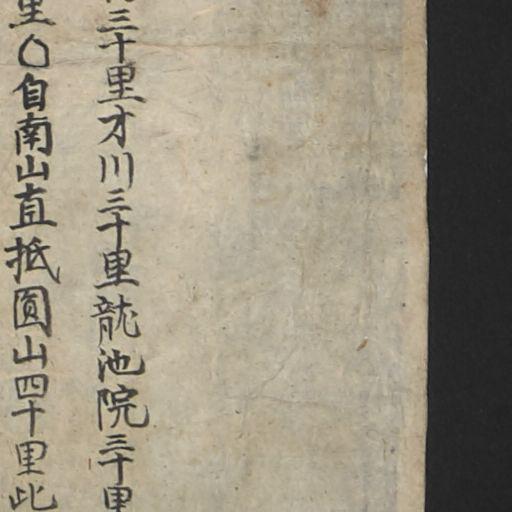 三十里才川三十里龍池院三十里
里〇自南山直抵圓山四十里此